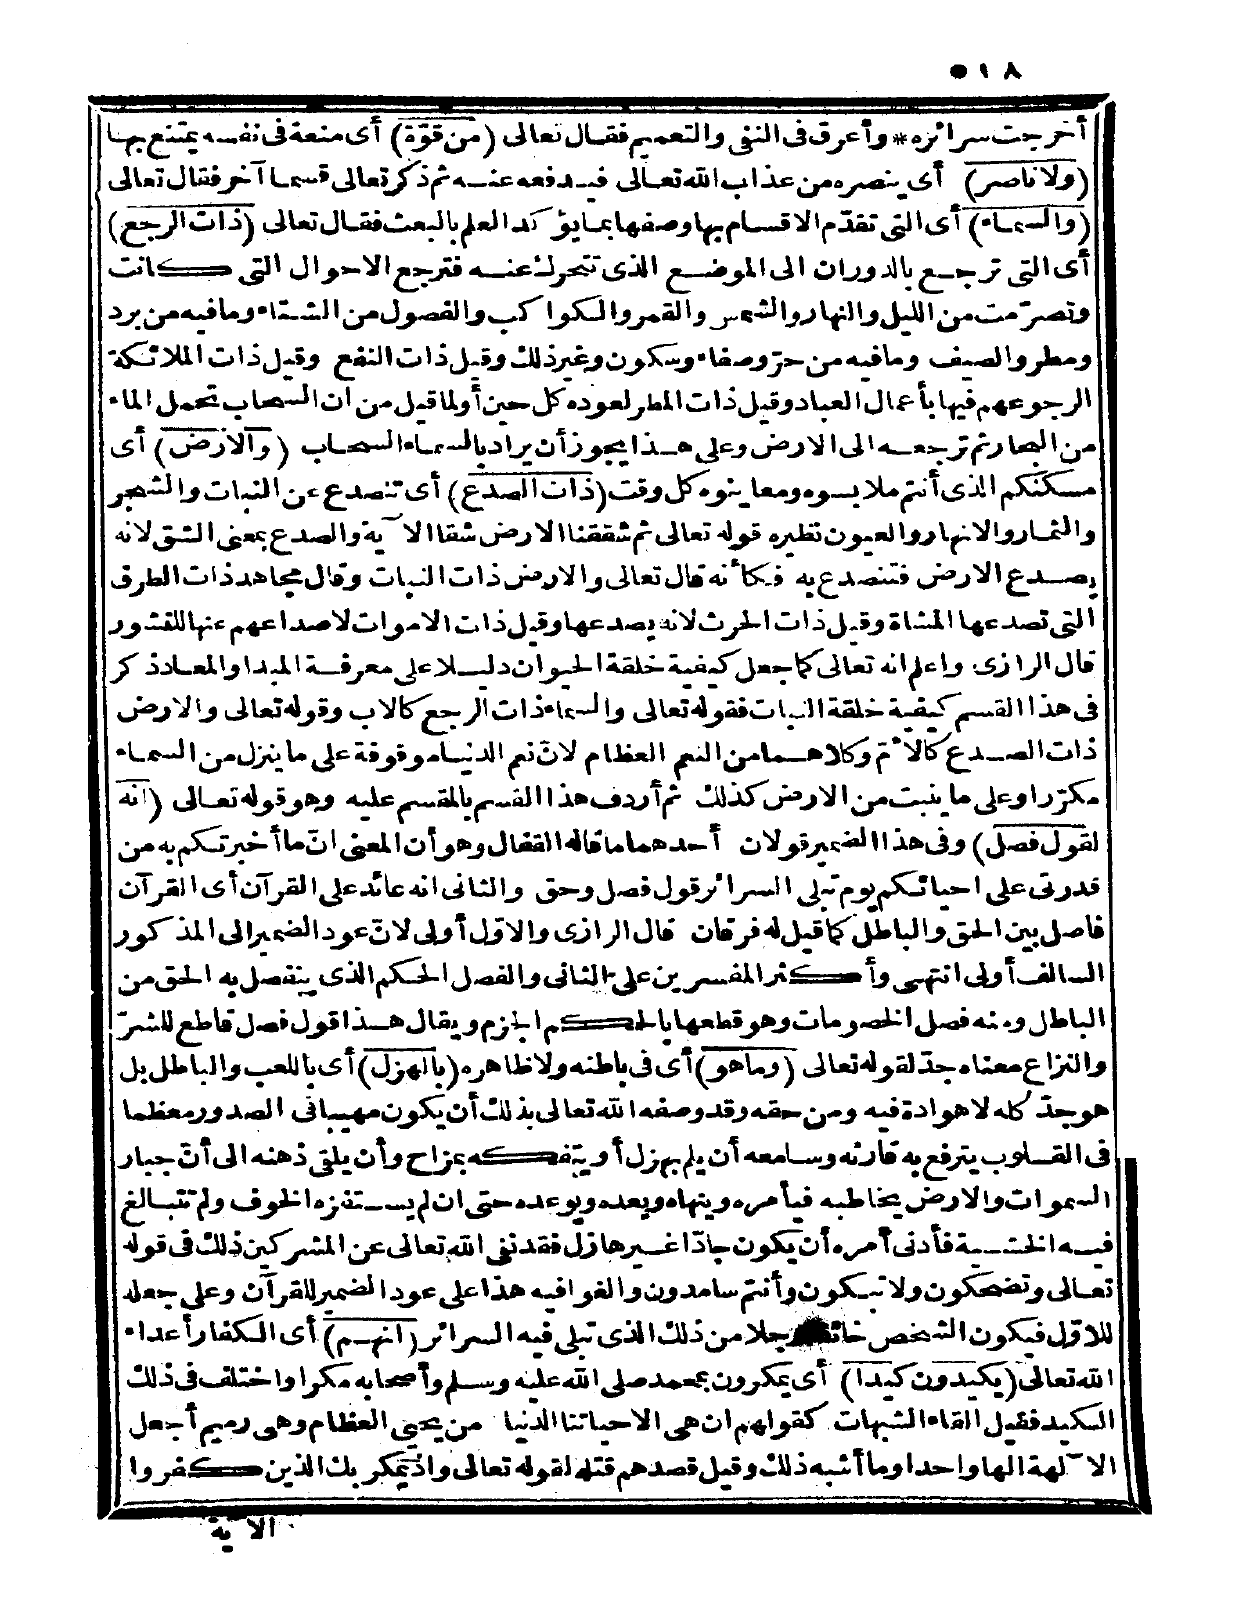 ٥١٨
أخرجت سرائره * وأعرق في النفي والتعميم فقال تعالى (من قوّة) أى منعة فى نفسه يمتنع بها
(ولا ناصر) أى ينصره من عذاب الله تعالى فيدفعه عنه ثم ذكر تعالى قسما آخر فقال تعالى
(والسماء) أى التى تقدّم الاقسام بها وصفها بما يؤكد العلم بالبعث فقال تعالى (ذات الرجع)
أى التى ترجع بالدوران الى الموضع الذى تتحرك عنه فترجع الاحوال التى كانت
وتصرّمت من الليل والنهار والشمس والقمر والكواكب والفصول من الشتاء وما فيه من برد
ومطر والصيف وما فيه من حرّ وصفاء وسكون وغير ذلك وقيل ذات النفع وقيل ذات الملائكة
الرجوعهم فيها بأعمال العباد وقيل ذات المطر لعوده كل حين أولما قيل من ان السحاب تحمل الماء
من البحار ثم ترجعه الى الارض وعلى هذا يجوز أن يراد بالسماء السحاب (والارض) أى
مسكنكم الذى أنتم ملابسوه ومعاينوه كل وقت (ذات الصدع) أى تنصدع عن النبات والشجر
والثمار والانهار والعيون نظيره قوله تعالى ثم شققنا الارض شقا الآية والصدع بمعنى الشق لانه
يصدع الارض فتنصدع به فكأنه قال تعالى والارض ذات النبات وقال مجاهد ذات الطرق
التى تصدعها المشاة وقيل ذات الحرث لانه يصدعها وقيل ذات الاموات لانصداعهم عنها للنشور
قال الرازى واعلم انه تعالى كما جعل كيفية خلقة الحيوان دليلا على معرفة المبدا والمعاد ذكر
فى هذا القسم كيفية خلقة النبات فقوله تعالى والسماء ذات الرجع كالاب وقوله تعالى والارض
ذات الصدع كالأم وكلاهما من النعم العظام لانّ نعم الدنيا موقوفة على ما ينزل من السماء
مكرّرا وعلى ما ينبت من الارض كذلك ثم أردف هذا القسم بالمقسم عليه وهو قوله تعالى (انه
لقول فصل) وفى هذا الضمير قولان أحدهما ما قاله القفال وهو أن المعنى انّ ما أخبرتكم به من
قدرتى على احيائكم يوم تبلى السرائر قول فصل وحق والثانى انه عائد على القرآن أى القرآن
فاصل بين الحق والباطل كما قيل له فرقان قال الرازى والاوّل أولى لانّ عود الضمير الى المذكور
السالف أولى انتهى وأكثر المفسرين على الثانى والفصل الحكم الذى ينفصل به الحق من
الباطل ومنه فصل الخصومات وهو قطعها بالحكم الجزم ويقال هذا قول فصل قاطع للشرّ
والنزاع معناه جدّ لقوله تعالى (وما هو) أى فى باطنه ولا ظاهره (بالهزل) أى باللعب والباطل بل
هو جدّ كله لا هوادة فيه ومن حقه وقد وصفه الله تعالى بذلك أن يكون مهيبا فى الصدور معظما
فى القلوب يترفع به قارئه وسامعه أن يلم بهزل أو يتفكه بمزاح وأن يلقى ذهنه الى أنّ جبار
السموات والارض يخاطبه فيأمره وينهاه ويعده ويوعده حتى ان لم يستفزه الخوف ولم تتبالغ
فيه الخشية فأدنى أمره أن يكون جادّا غير هازل فقد نفى الله تعالى عن المشركين ذلك فى قوله
تعالى وتضحكون ولا تبكون وأنتم سامدون والغوا فيه هذا على عود الضمير للقرآن وعلى جعله
للاوّل فيكون الشخص خائفا وجلا من ذلك الذى تبلى فيه السرائر (انهم) أى الكفار أعداء
الله تعالى (يكيدون كيدا) أى يمكرون بمحمد صلى الله عليه وسلم وأصحابه مكرا واختلف فى ذلك
الكيد فقيل القاء الشبهات كقولهم ان هى الاحياتنا الدنيا من يحيى العظام وهى رميم أجعل
الآلهة الها واحدا وما أشبه ذلك وقيل قصدهم قتله لقوله تعالى واذ يمكر بك الذين كفروا
الآية